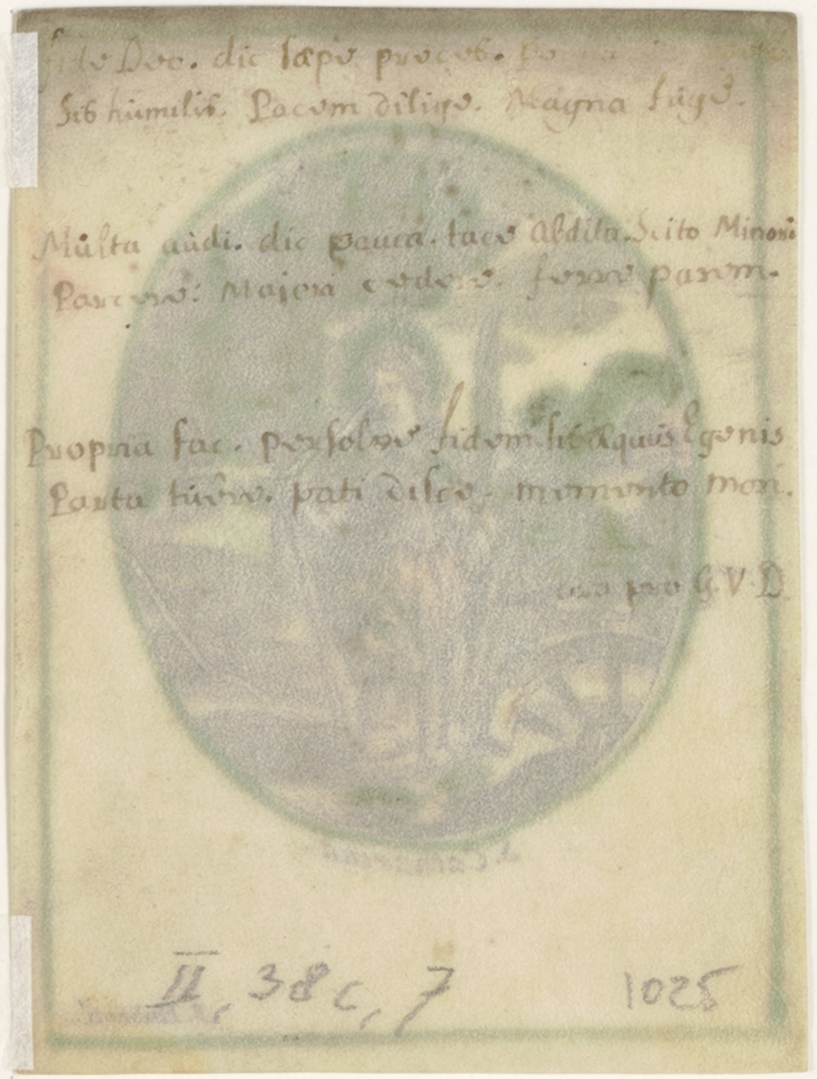 fide Deo. dic sæpe preces.
Sis humilis. Pacem dilige. Magna fuge.
Multa audi. dic pauca. tace Abdita. Scito Minori
Parcere: Majori cedere. ferre parem.
Propria fac. persolve fidem. sis æquus Egenis
Parta tuêre. pati disce. memento mori.
ora pro G. V. D.
S. Catharina
II, 38c, 7 1025